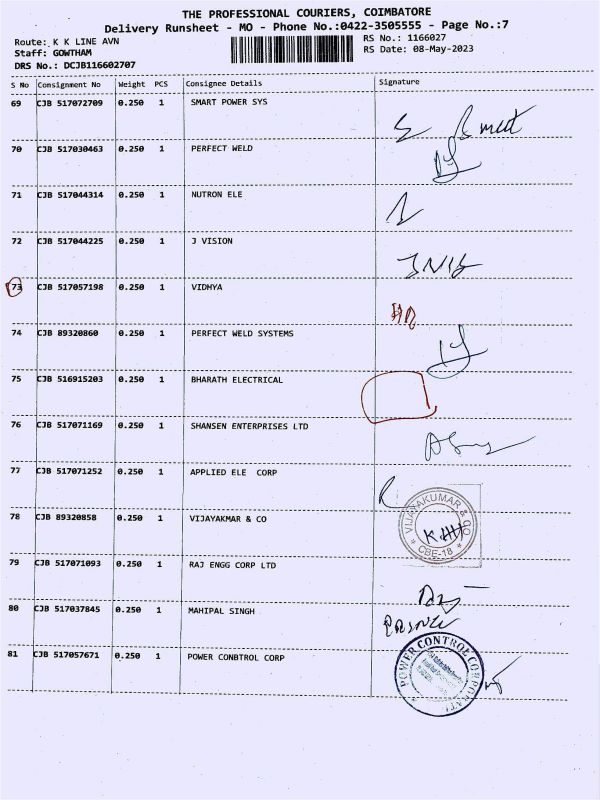 THE PROFESSIONAL COURIERS, COIMBATORE
Delivery Runsheet - MO - Phone No.:0422-3505555 - Page No.:7
Route: K K LINE AVN
RS No.: 1166027
Staff: GOWTHAM
RS Date: 08-May-2023
DRS No.: DCJB116602707
S No Consignment No Weight PCS Consignee Details Signature
69 CJB 517072709 0.250 1 SMART POWER SYS
70 CJB 517030463 0.250 1 PERFECT WELD
71 CJB 517044314 0.250 1 NUTRON ELE
72 CJB 517044225 0.250 1 J VISION
73 CJB 517057198 0.250 1 VIDHYA
74 CJB 89320860 0.250 1 PERFECT WELD SYSTEMS
75 CJB 516915203 0.250 1 BHARATH ELECTRICAL
76 CJB 517071169 0.250 1 SHANSEN ENTERPRISES LTD
77 CJB 517071252 0.250 1 APPLIED ELE CORP
R
78 CJB 89320858 0.250 1 VIJAYAKMAR & CO
VIJAYAKUMAR & CO
CBE-18
79 CJB 517071093 0.250 1 RAJ ENGG CORP LTD
80 CJB 517037845 0.250 1 MAHIPAL SINGH
81 CJB 517057671 0.250 1 POWER CONBTROL CORP
POWER CONTROL CORPORATI